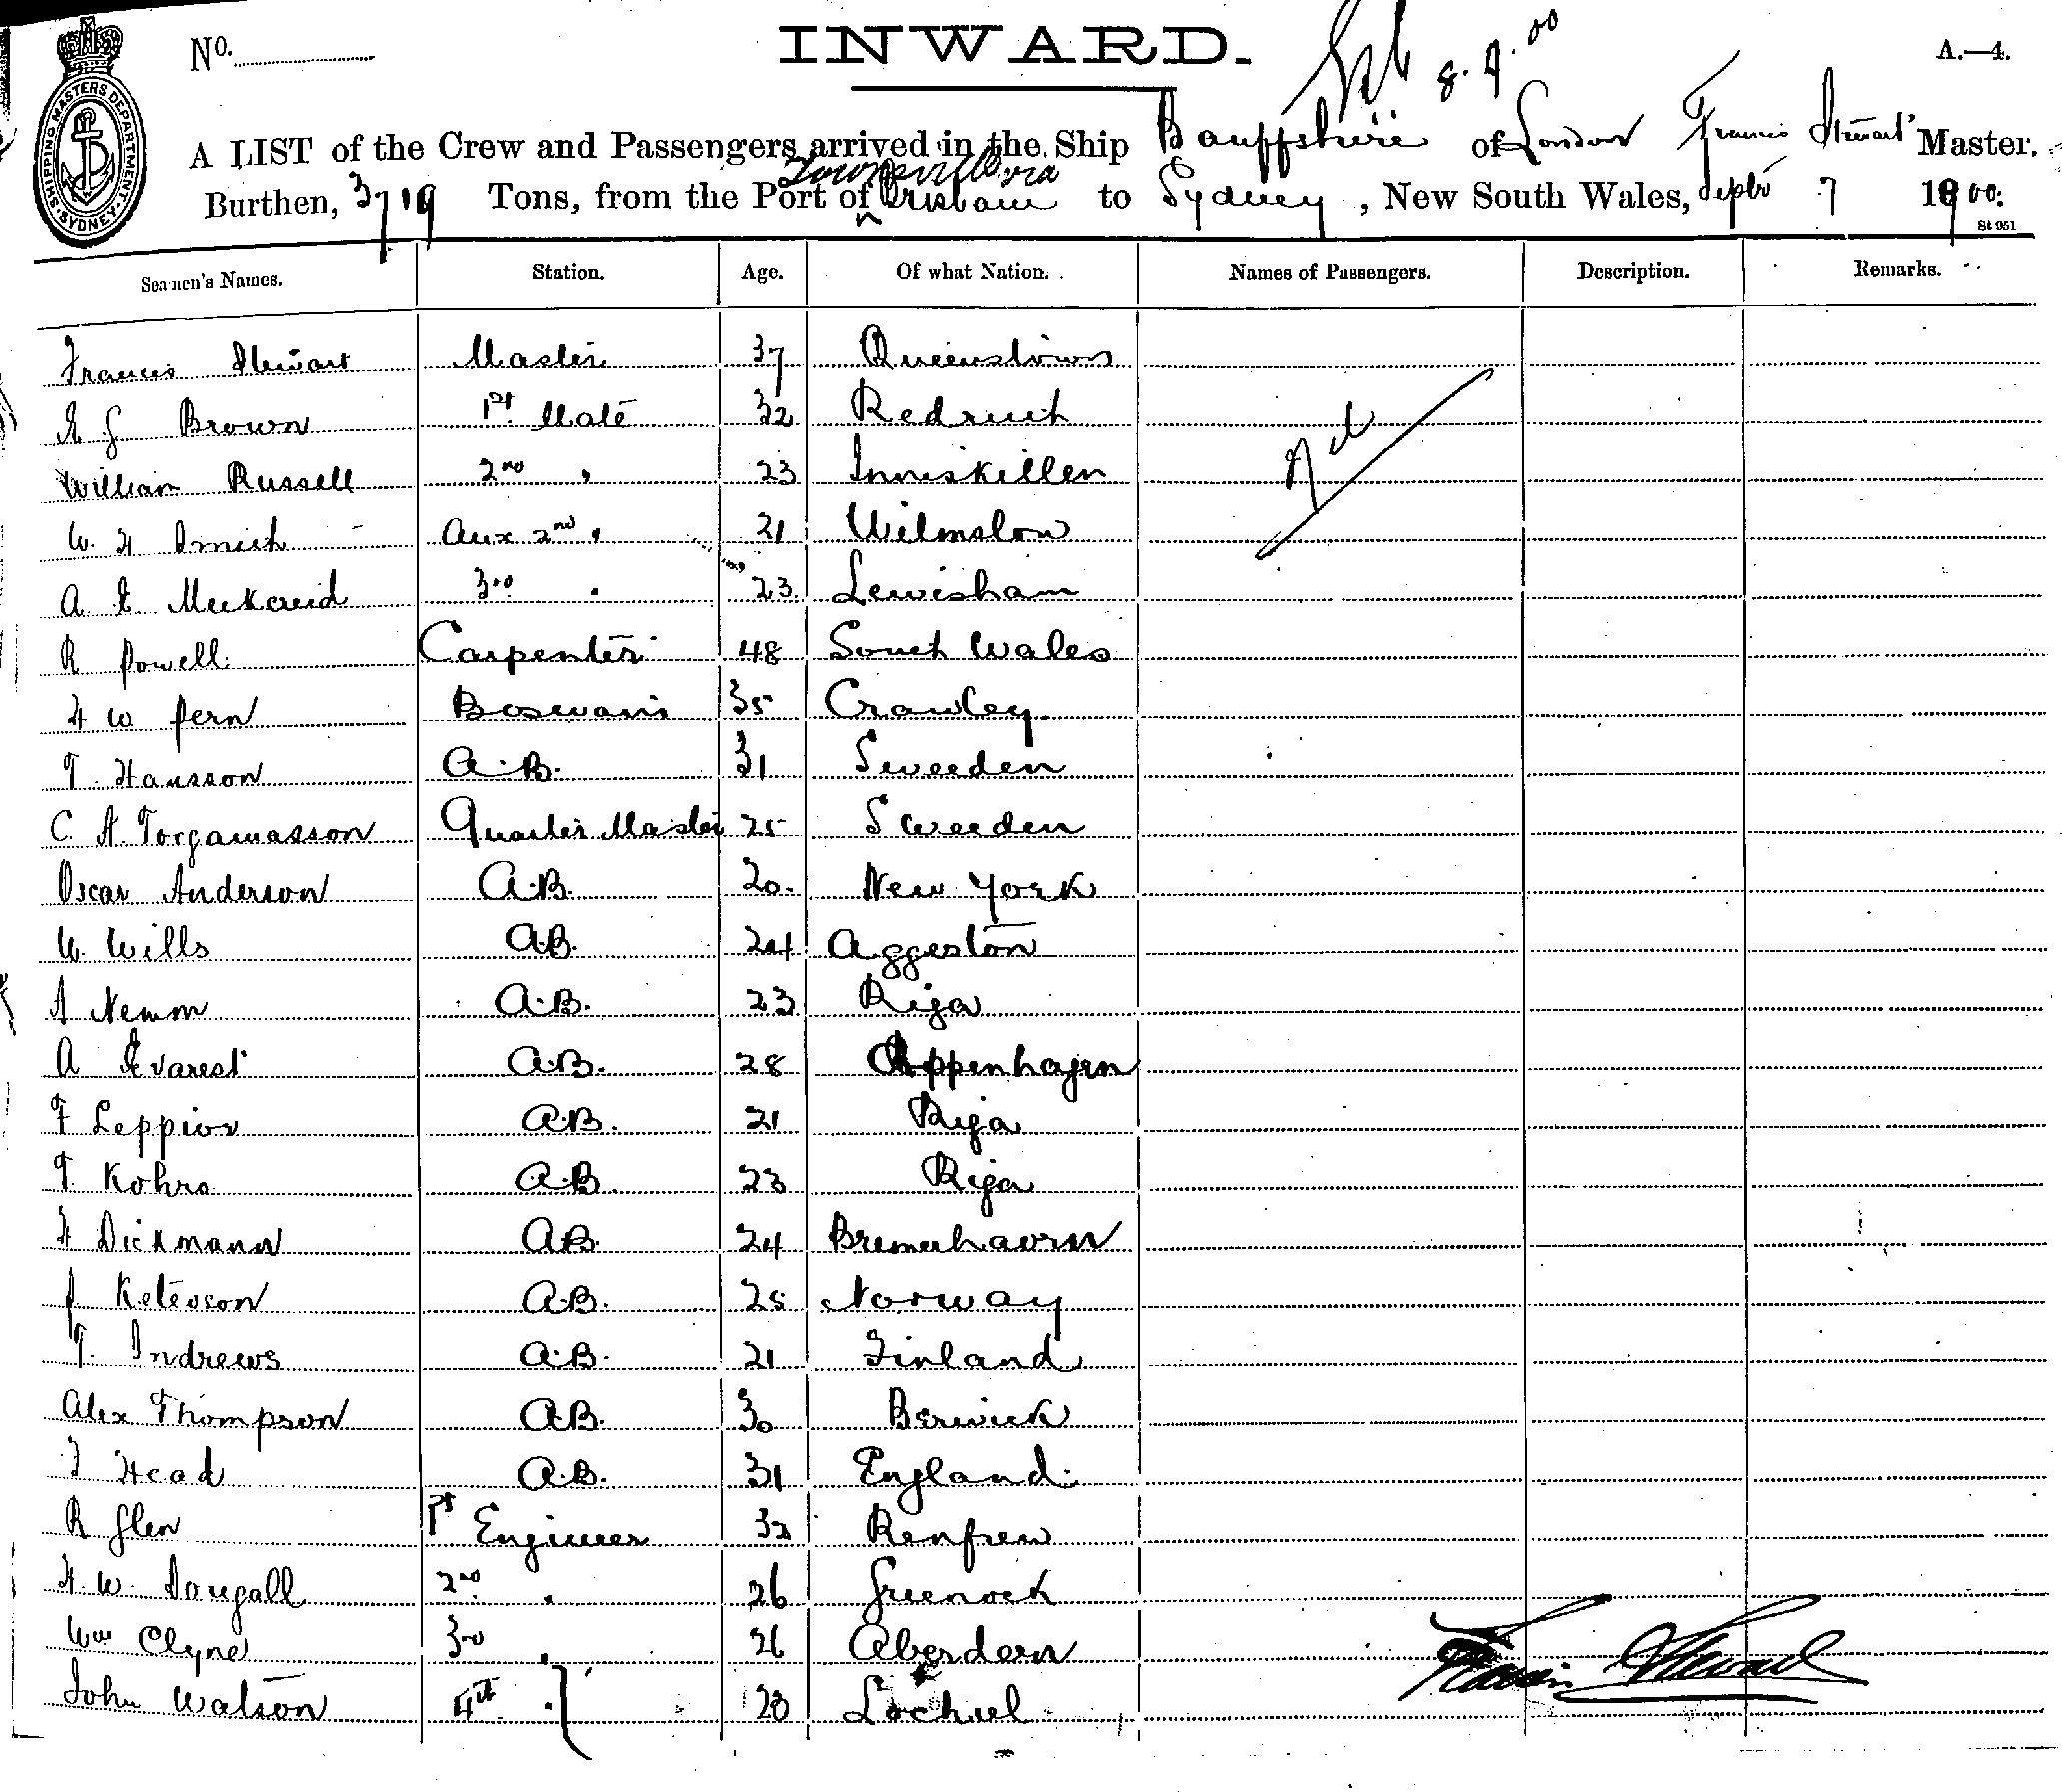 No.
INWARD.
8.9.00
A.—4.
SHIPPING MASTERS DEPARTMENT SYDNEY
A LIST of the Crew and Passengers arrived in the Ship Banffshire of London Francis Stewart Master.
Townsville via
Burthen, 3719 Tons, from the Port of Brisbane to Sydney, New South Wales, Septr 7 1900.
St 951
Seamen's Names. Station. Age. Of what Nation. Names of Passengers. Description. Remarks.
Francis Stewart Master 37 Queenstown
E G Brown 1st Mate 32 Redruth
William Russell 2nd " 23 Inniskillen
Nil
W. H Smith Aux 2nd " 21 Wilmslow
A E 3rd " 23 Lewisham
R Powell Carpenter 48 South Wales
H W Pern Boswain 35 Crawley
T. Hansson A.B. 31 Sweeden
C. A. Torgamasson Quarter Master 25 Sweeden
Oscar Anderson A.B. 20 New York
W Wills A.B. 24 Aggeston
A Nemm A.B. 23 Riga
A Evarest A.B. 28 Coppenhagen
F Leppior A.B. 21 Riga
T. Kohrs A.B. 23 Riga
H Dickmann A.B. 24 Bremerhaven
J Keterson A.B. 25 Norway
T. Andrews A.B. 21 Finland
Alex Thompson A.B. 30 Berwick
F Head A.B. 31 England
R Glen 1st Engineer 32 Renfrew
H. W. Dougall 2nd " 26 Greenock
Wm Clyne 3rd " 26 Aberdeen
John Watson 4th " 28
Francis Stewart